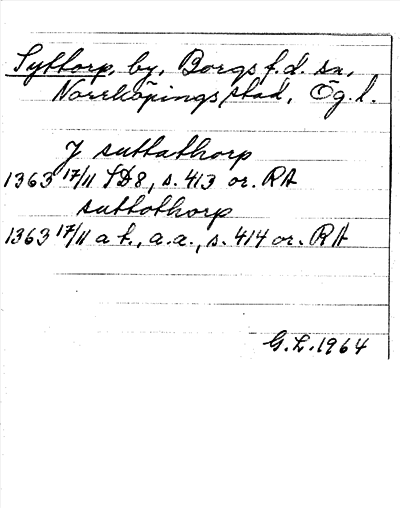 Syttorp, by, Borgs f.d. sn,
Norrköpings stad, Ög. l.
J suttathorp
1363 17/11 SD8, s. 413 or. RA
suttothorp
1363 17/11 a t., a.a., s. 414 or. RA
G.L. 1964